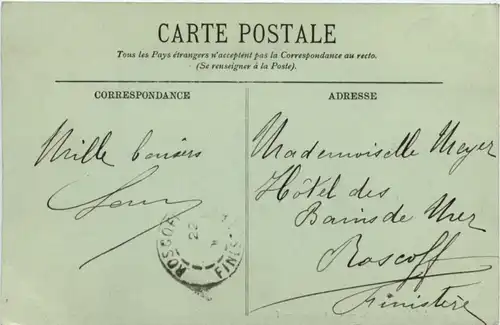 CARTE POSTALE
Tous les Pays étrangers n'acceptent pas la Correspondance au recto.
(Se renseigner à la Poste).
CORRESPONDANCE
ADRESSE
Mille baisers
Mademoiselle Meyer
Hôtel des
Bains de Mer
Roscoff
Finistère
ROSCOFF
22
FINIS